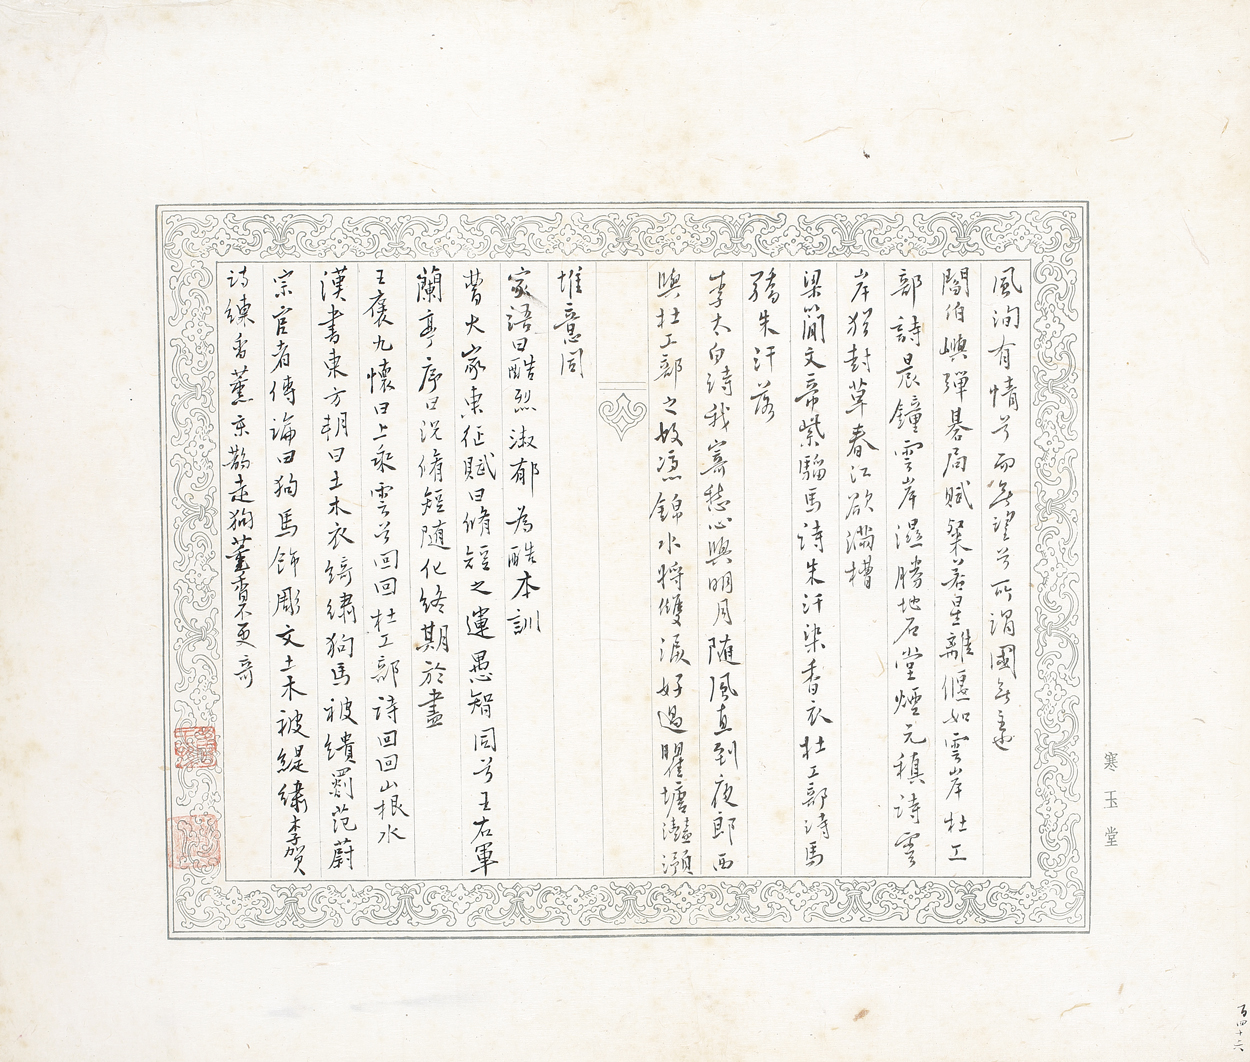 風洵有情兮而無望兮所謂國無
閻伯嶼彈棊局賦粲若星離偃如雲岸杜工
部詩晨鐘雲岸濕勝地石堂煙元稹詩雲
岸猶封草春江欲滿槽
梁簡文帝紫騮馬詩朱汗染香衣杜工部詩馬
驕朱汗落
李太白詩我寄愁心與明月隨風直到夜郎西
與杜工部之故憑錦水將雙淚好過瞿塘灩澦
堆意同
家語曰酷烈淑郁為酷本訓
曹大家東征賦曰脩短之運愚智同兮王右軍
蘭亭序曰況脩短隨化終期於盡
王褒九懷曰上乘雲兮回回杜工部詩回回山根水
漢書東方朔曰土木衣綺繡狗馬被繢罽范蔚
宗宦者傳論曰狗馬飾彫文土木被緹繡李賀
詩練香薰宋鵲走狗薰香不更奇
寒玉堂
百四十六